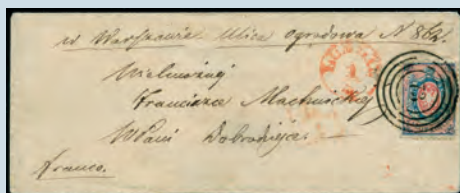 w Warszawie Ulica ogrodowa N 862.
Wielmożnej
Francisce Machnickiej
WPani Dobrodziejce.
Franco.